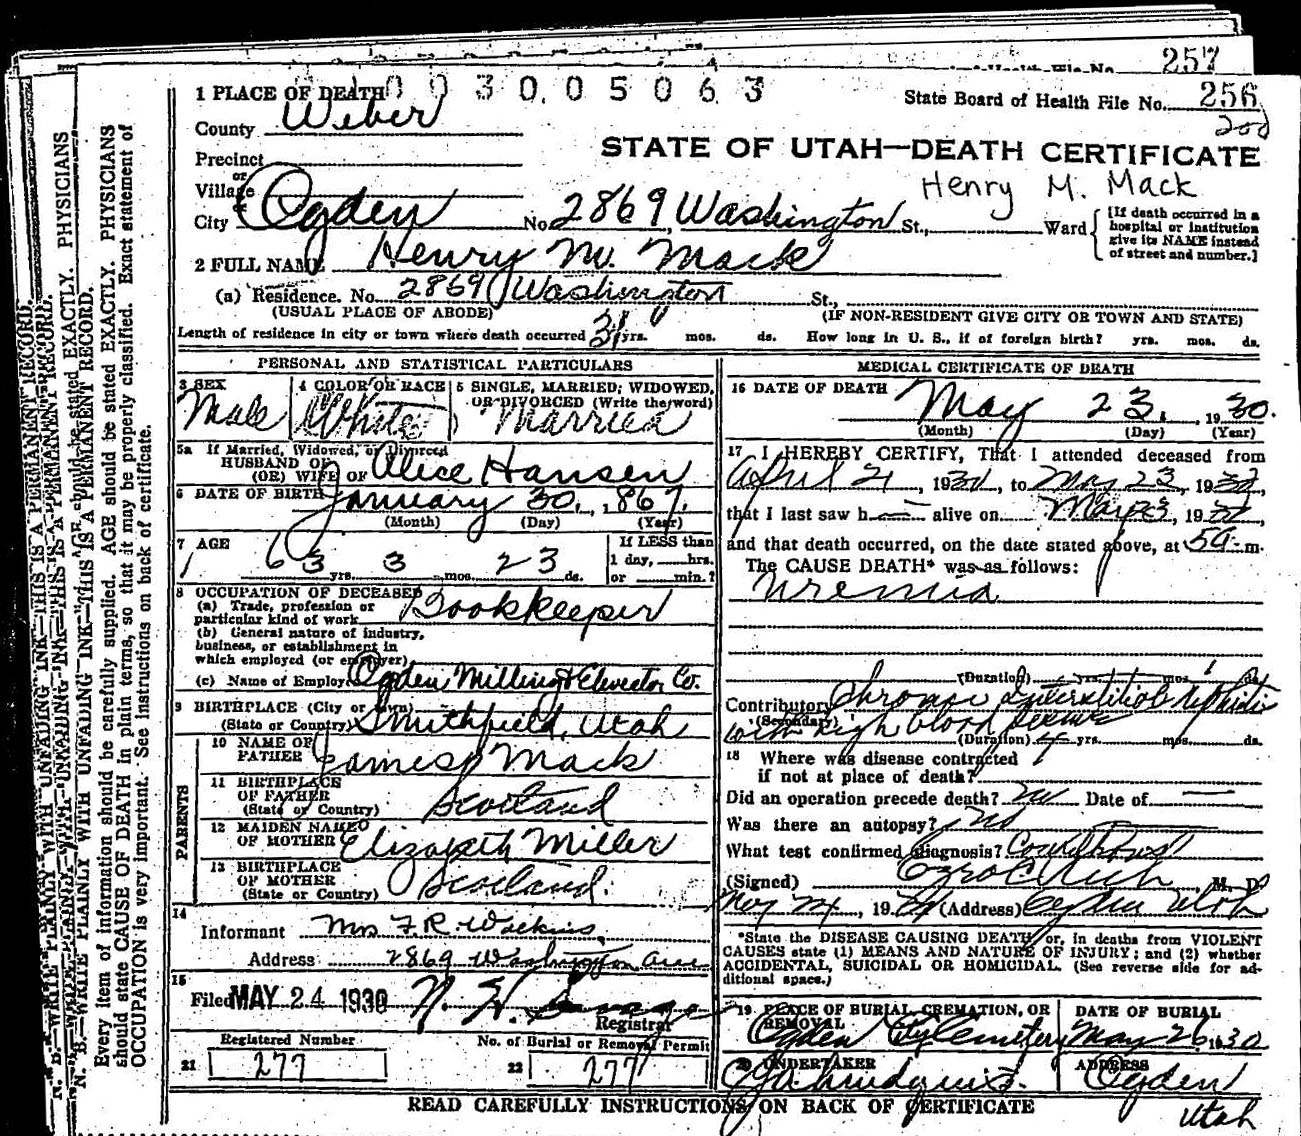 257
0 0 3 0 0 5 0 6 3
State Board of Health File No. 256
200
1 PLACE OF DEATH
County Weber
STATE OF UTAH—DEATH CERTIFICATE
Henry M. Mack
Precinct
or
Village
City Ogden No. 2869 Washington St., Ward
[If death occurred in a hospital or institution give its NAME instead of street and number.]
2 FULL NAME Henry M. Mack
(a) Residence. No. 2869 Washington St.,
(USUAL PLACE OF ABODE) (IF NON-RESIDENT GIVE CITY OR TOWN AND STATE)
Length of residence in city or town where death occurred 31 yrs. mos. ds. How long in U. S., if of foreign birth? yrs. mos. ds.
PERSONAL AND STATISTICAL PARTICULARS
3 SEX Male
4 COLOR OR RACE White
5 SINGLE, MARRIED, WIDOWED, OR DIVORCED (Write the word) Married
5a If Married, Widowed, or Divorced
HUSBAND OF
(OR) WIFE OF Alice Hansen
6 DATE OF BIRTH January 30, 1867
(Month) (Day) (Year)
7 AGE 63 yrs. 3 mos. 23 ds.
If LESS than 1 day, hrs. or min.?
8 OCCUPATION OF DECEASED
(a) Trade, profession or particular kind of work Bookkeeper
(b) General nature of industry, business, or establishment in which employed (or employer)
(c) Name of Employer Ogden Milling & Elevator Co.
9 BIRTHPLACE (City or town)
(State or Country) Smithfield, Utah
PARENTS
10 NAME OF FATHER James Mack
11 BIRTHPLACE OF FATHER
(State or Country) Scotland
12 MAIDEN NAME OF MOTHER Elizabeth Miller
13 BIRTHPLACE OF MOTHER
(State or Country) Scotland.
14
Informant Mrs F.R. Watkins
Address 2869 Washington Ave
15
Filed MAY 24 1930
Registrar
Registered Number
21 277
No. of Burial or Removal Permit
22 277
MEDICAL CERTIFICATE OF DEATH
16 DATE OF DEATH May 23, 1930.
(Month) (Day) (Year)
17 I HEREBY CERTIFY, That I attended deceased from
April 21, 1930, to May 23, 1930,
that I last saw h alive on May 23, 1930,
and that death occurred, on the date stated above, at 5 a. m.
The CAUSE DEATH* was as follows:
Uremia
(Duration) yrs. mos. ds.
Contributory Chronic Interstitial Nephritis
(Secondary) with high blood pressure
(Duration) 4 yrs. mos. ds.
18 Where was disease contracted
if not at place of death?
Did an operation precede death? no Date of
Was there an autopsy? no
What test confirmed diagnosis?
(Signed) M. D.
May 24, 19 30 (Address) Ogden Utah
*State the DISEASE CAUSING DEATH, or, in deaths from VIOLENT
CAUSES state (1) MEANS AND NATURE OF INJURY; and (2) whether
ACCIDENTAL, SUICIDAL OR HOMICIDAL. (See reverse side for ad-
ditional space.)
19 PLACE OF BURIAL, CREMATION, OR REMOVAL
Ogden Cemetery
DATE OF BURIAL
May 26 1930
20 UNDERTAKER
ADDRESS
Ogden
Utah
READ CAREFULLY INSTRUCTIONS ON BACK OF CERTIFICATE
N. B.—WRITE PLAINLY WITH UNFADING INK—THIS IS A PERMANENT RECORD.
Every item of information should be carefully supplied. AGE should be stated EXACTLY. PHYSICIANS
should state CAUSE OF DEATH in plain terms, so that it may be properly classified. Exact statement of
OCCUPATION is very important. See instructions on back of certificate.